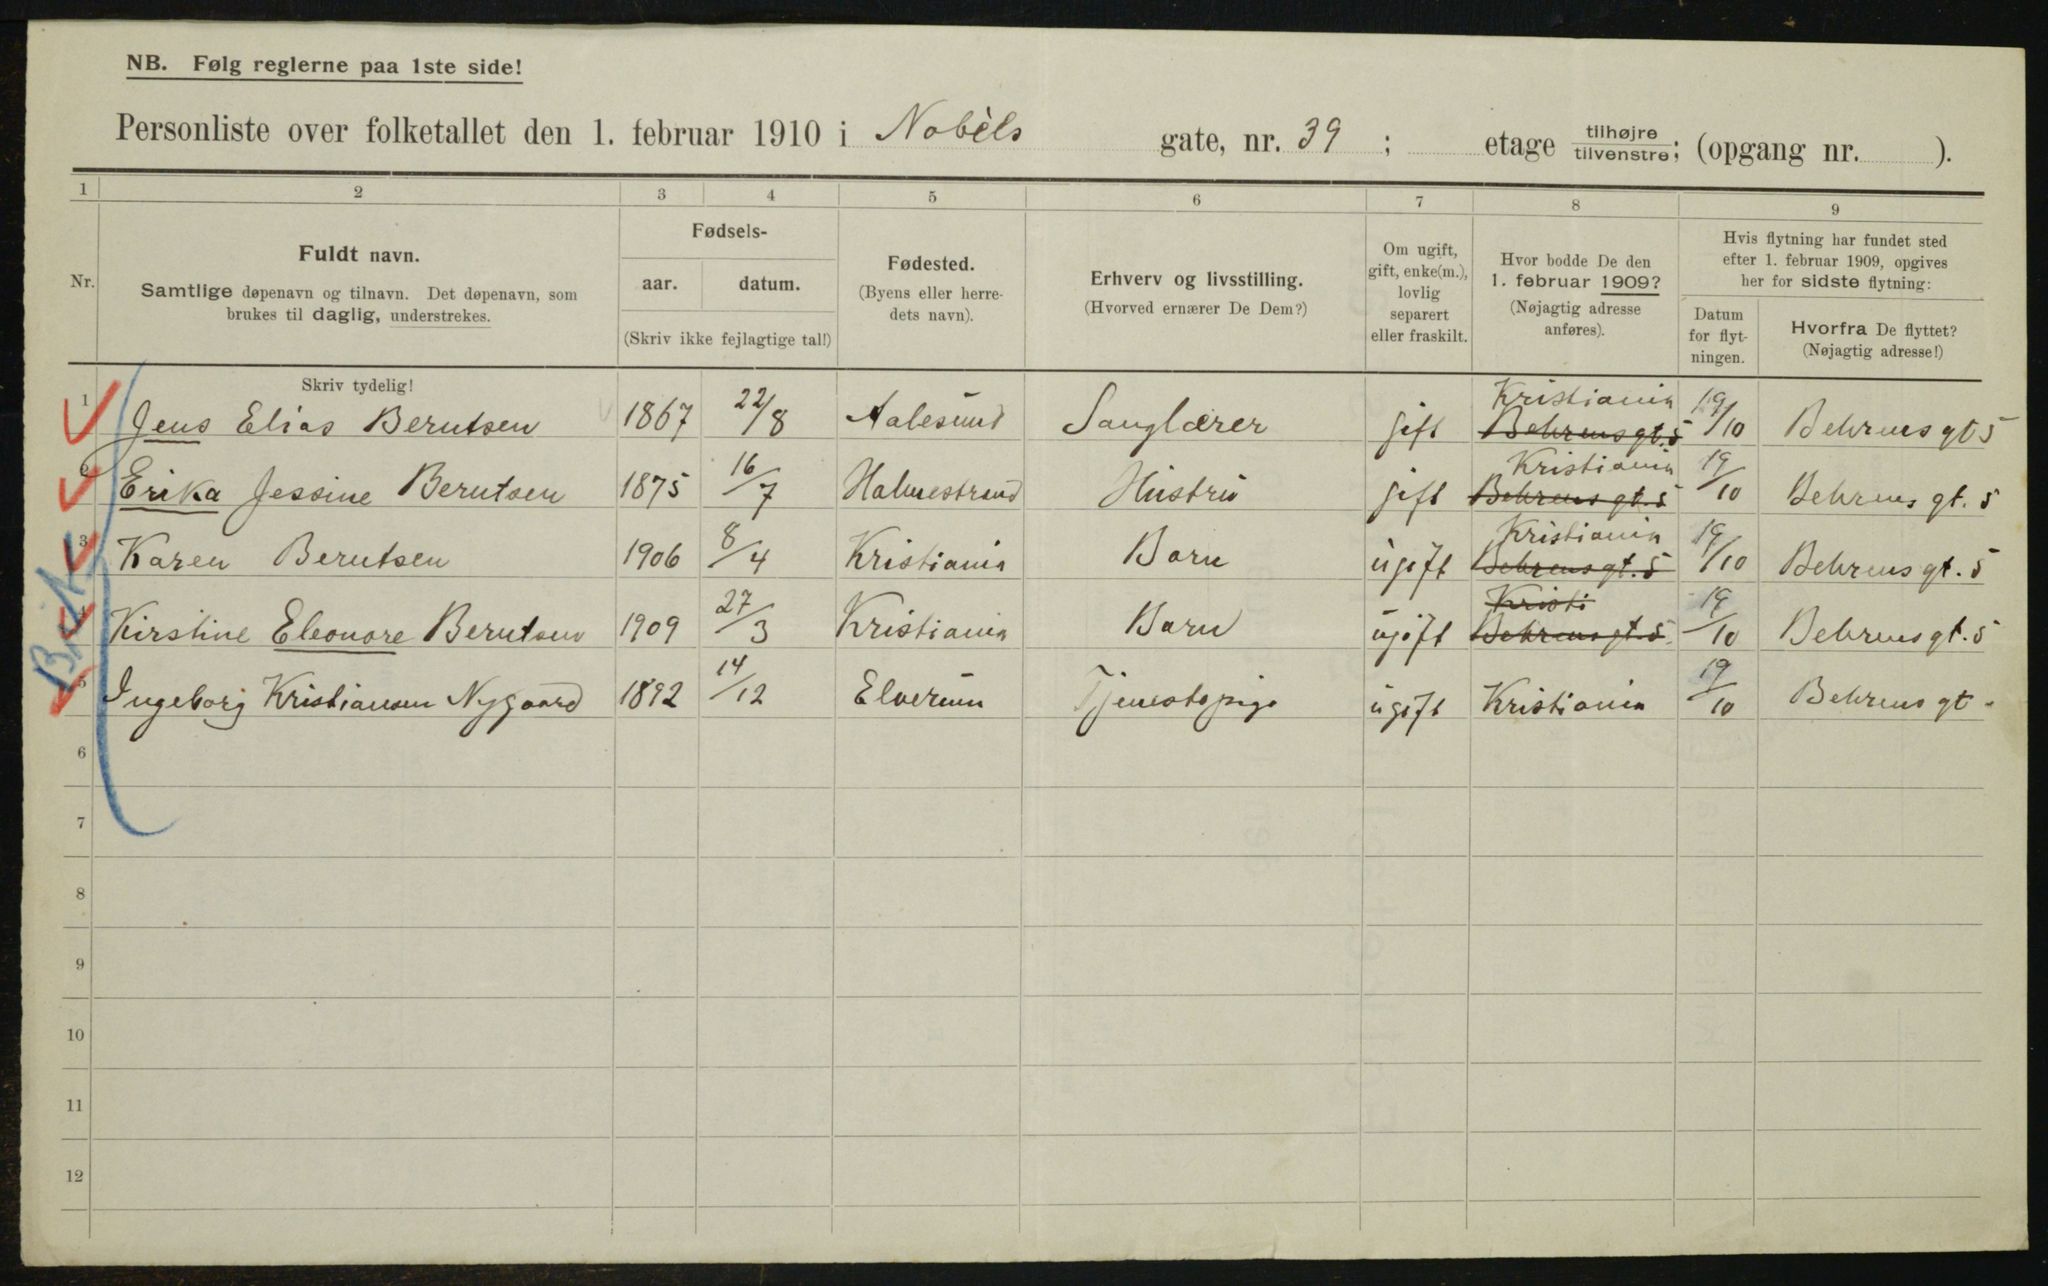 NB. Følg reglerne paa 1ste side!
Personliste over folketallet den 1. februar 1910 i Nobèls gate, nr. 39 ; etage tilhøjre/tilvenstre; (opgang nr. ).
1 2 3 4 5 6 7 8 9
Nr.
Fuldt navn.
Samtlige døpenavn og tilnavn. Det døpenavn, som
brukes til daglig, understrekes.
Fødsels-
aar. datum.
(Skriv ikke fejlagtige tal!)
Fødested.
(Byens eller herre-
dets navn).
Erhverv og livsstilling.
(Hvorved ernærer De Dem?)
Om ugift,
gift, enke(m.),
lovlig
separert
eller fraskilt.
Hvor bodde De den
1. februar 1909?
(Nøjagtig adresse
anføres).
Hvis flytning har fundet sted
efter 1. februar 1909, opgives
her for sidste flytning:
Datum
for flyt-
ningen.
Hvorfra De flyttet?
(Nøjagtig adresse!)
Skriv tydelig!
Kristiania
1 Jens Elias Berntsen 1867 22/8 Aalesund Sanglærer gift Behrensgt. 5 19/10 Behrensgt 5
Kristiania
2 Erika Jessine Berntsen 1875 16/7 Holmestrand Hustru gift Behrens gt. 5 19/10 Behrens gt. 5
Kristiania
3 Karen Berntsen 1906 8/4 Kristiania Barn ugift Behrensgt. 5 19/10 Behrens gt. 5
Kristi
4 Kirstine Eleonore Berntsen 1909 27/3 Kristiania Barn ugift Behrensgt. 5 19/10 Behrens gt. 5
5 Ingeborg Kristiansen Nygaard 1892 14/12 Elverum Tjenestepige ugift Kristiania 19/10 Behrens gt.
6
7
8
9
10
11
12